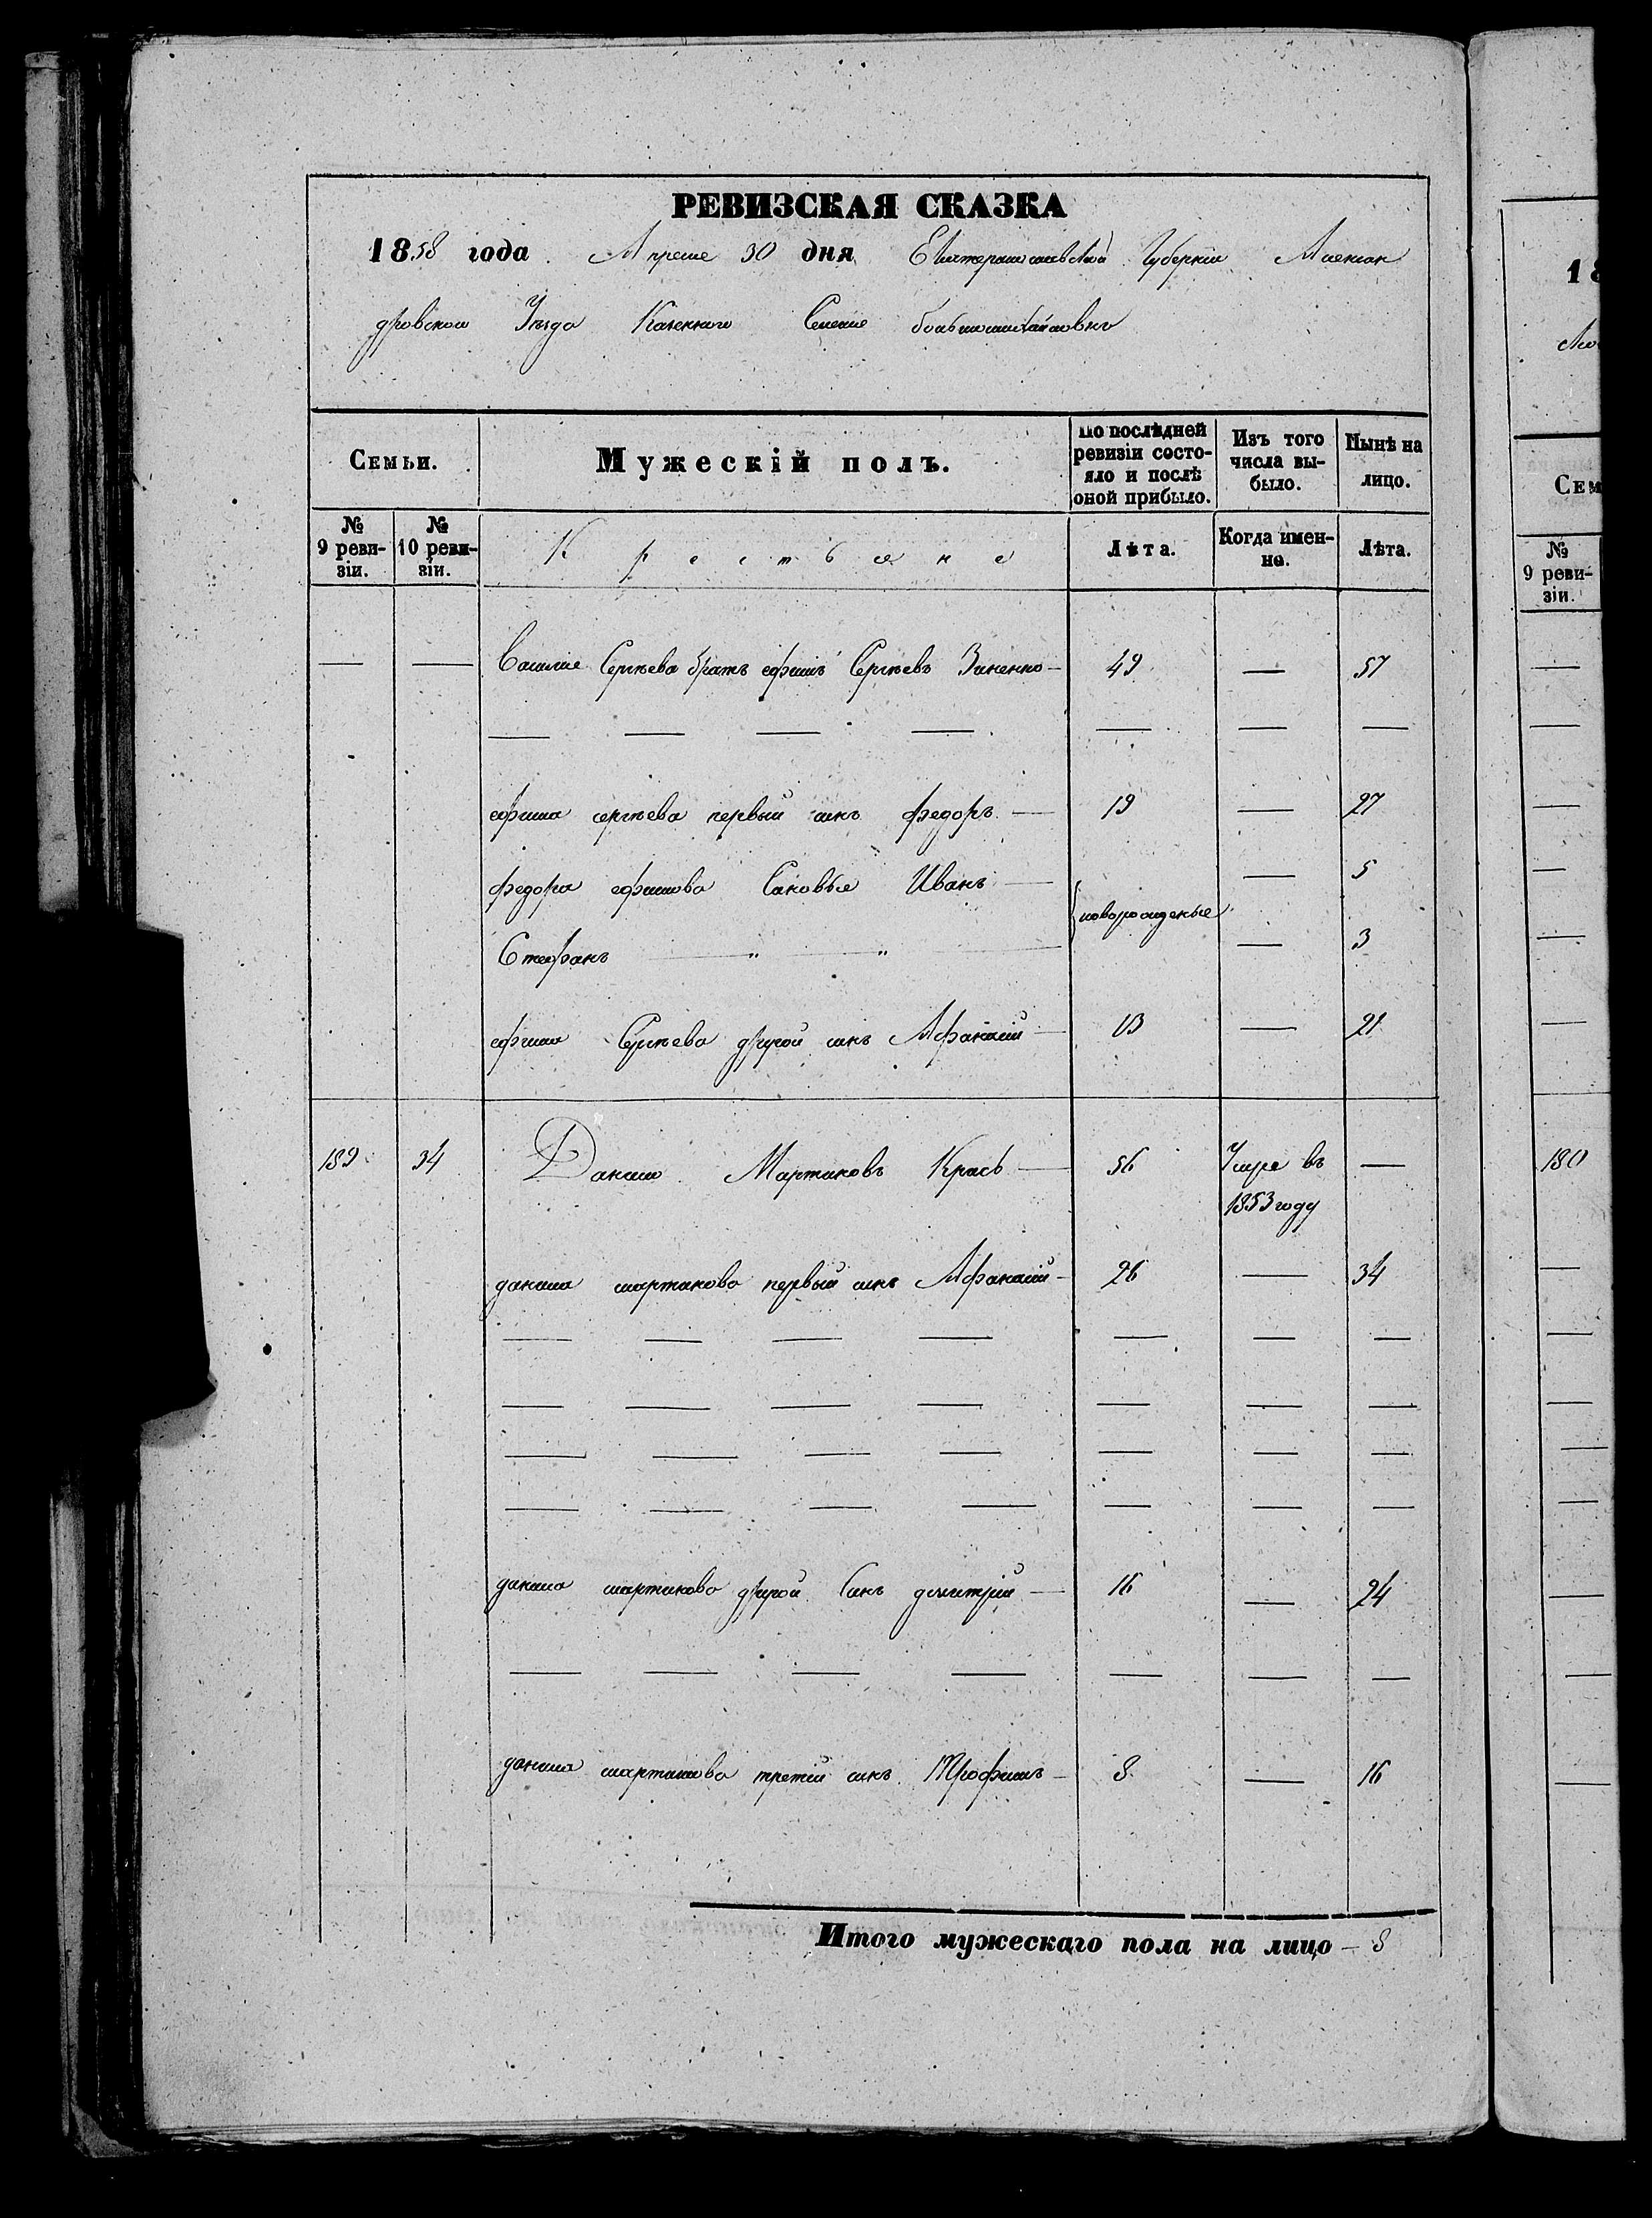 РЕВИЗСКАЯ СКАЗКА
1858 года Апреля 30 дня Екатеринославской Губерніи Алексан
дровского Уезда Казенного Селения
Семьи.
Мужескій полъ.
По послѣдней ревизіи состо-
яло и послѣ оной прибыло.
Изъ того числа вы-
было.
Нынѣ на лицо.
№ 9 реви-
зіи.
№ 10 реви-
зіи.
Крестьяне
Лѣта.
Когда имен-
но.
Лѣта.
— — Василия Сергѣева братъ ефимъ Сергѣевъ Зиненко — 49 — 57
— — — — — — —
ефима сергѣева первый синъ федоръ — 19 — 27
федора ефимова Сыновья Иванъ — новорожденые — 5
Стефанъ — " — " — — 3
ефима Сергѣева другой синъ Афанасій — 13 — 21
189 34 Данило Мартиновъ Крась — 56 Умре въ —
1853 году
данила мартинова первый синъ Афанасій — 26 — 34
— — — — — — —
— — — — — — —
— — — — — — —
— — — — — — —
данила мартинова другой Синъ дмитрій — 16 — 24
— — — — — — —
данила мартинова третій синъ Трофимъ — 8 — 16
Итого мужескаго пола на лицо — 8
18
Сем
№
9 реви-
зіи.
180